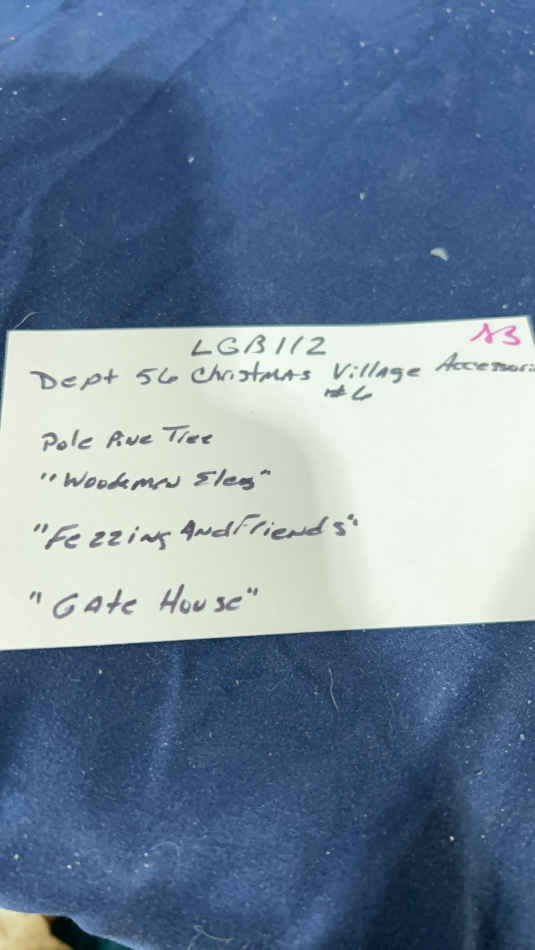 LGB112
A3
Dept 56 Christmas Village Accessori
#6
Pole Pine Tree
"Woodsmen Elves"
"Fezzing And Friends"
"Gate House"